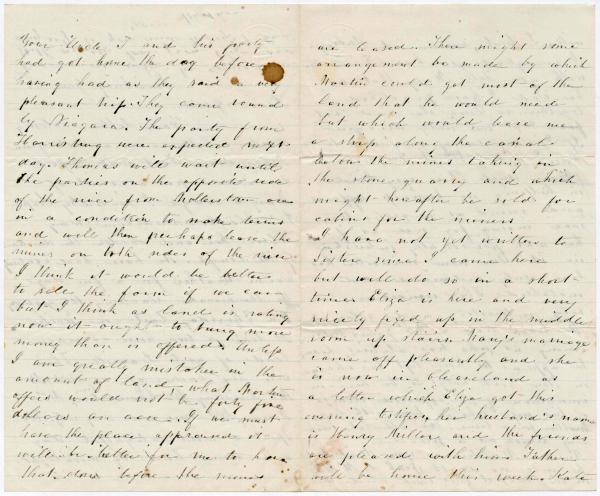 Your Uncle J and his party
had got home the day before
having had as they said a very
pleasant trip. They came round
by Niagara. The party from
Harrisburg were expected next
day. Thomas will wait until
the parties on the opposite side
of the river from are
in a condition to make terms
and will then perhaps lease the
mines on both sides of the river
I think it would be better
to sell the farm if we can
but I think as land is rating
now it ought to bring more
money than is offered. Unless
I am greatly mistaken in the
amount of land, what Martin
offers would not be forty five
dollars an acre. If we must
have the place appraised it
will be better for me to have
that done before the mines
are leased. There might some
arrangement be made by which
Martin could get most of the
land that he would need
but which would leave me
a strip along the canal
the mines taking in
the stone quarry and which
might hereafter be sold for
cabins for the miners
I have not yet written to
Sister since I came here
but will do so in a short
time. Eliza is here and very
nicely fixed up in the middle
room up stairs. marriage
came off pleasantly and she
is now in Cleaveland as
a letter which Eliza got this
evening testifies, her husband's name
is Henry and the friends
are pleased with him. Father
will be home this week. Kate